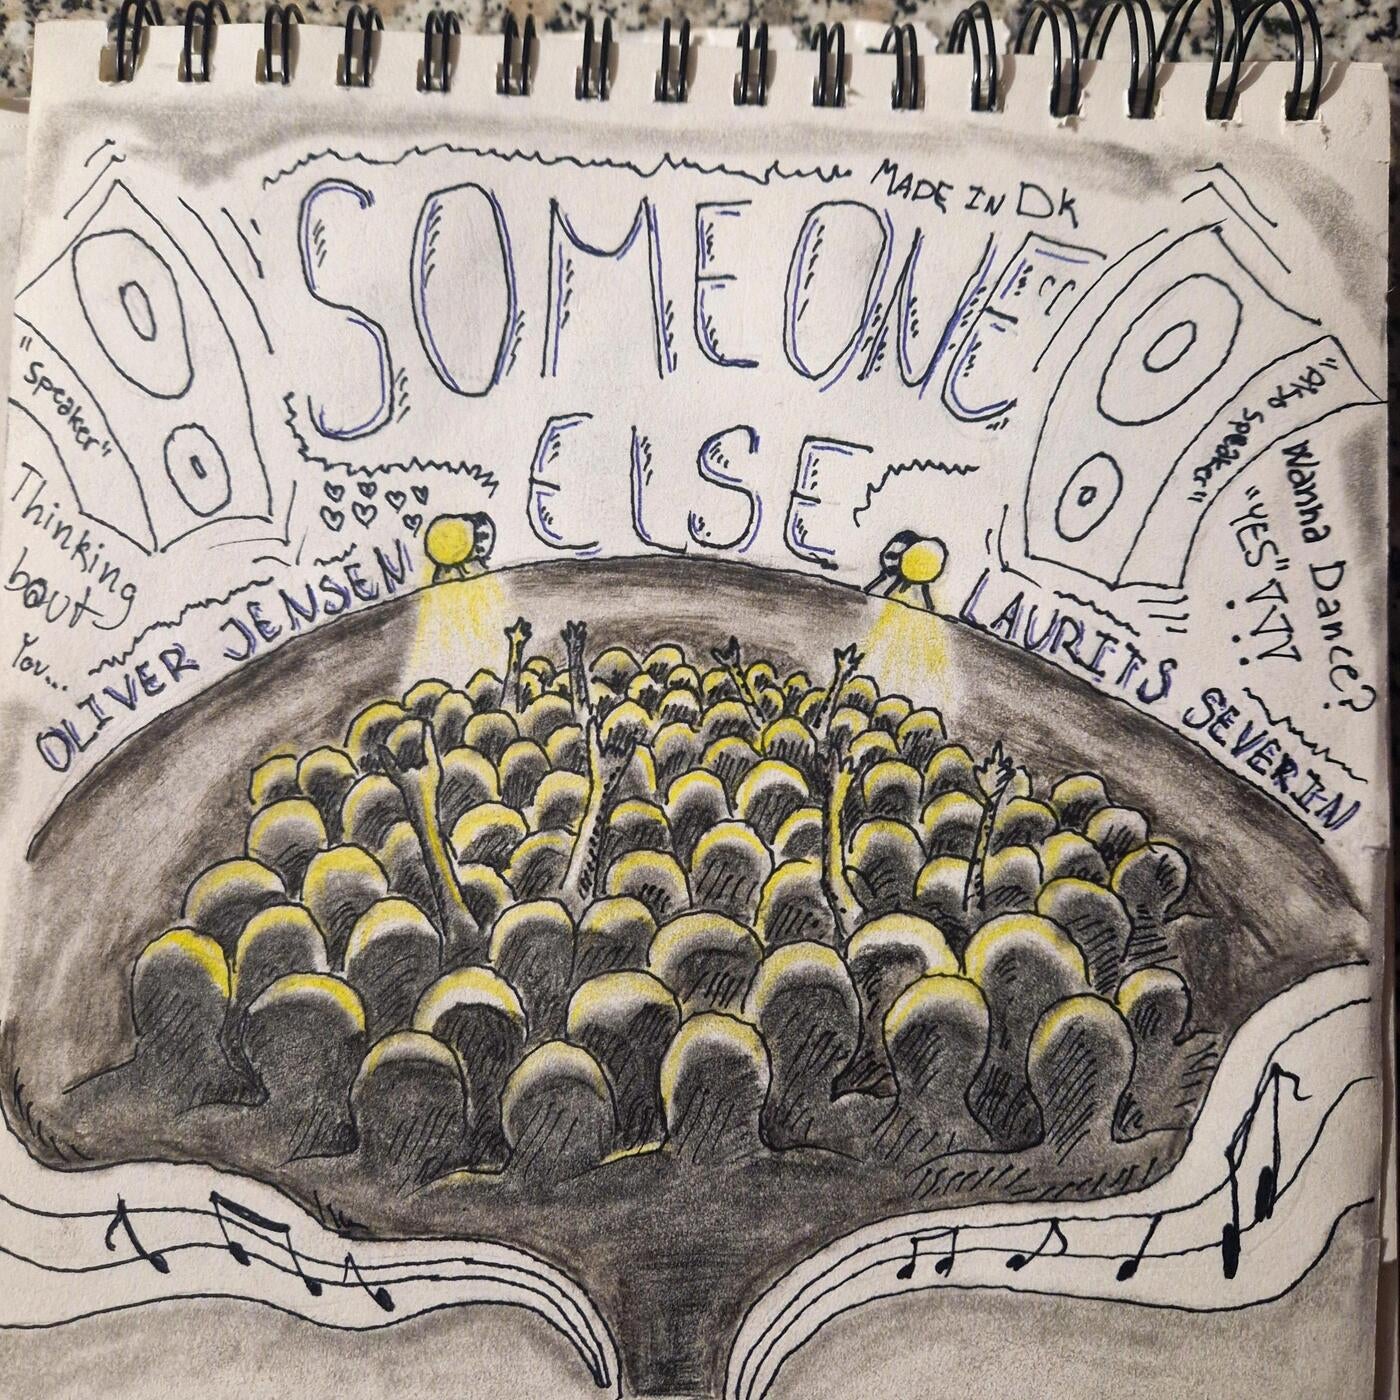 MADE IN DK
SOMEONE
ELSE
"Speaker"
"Also Speaker"
Thinking
bout
You...
OLIVER JENSEN
LAURITS SEVERIN
Wanna Dance?
"YES"